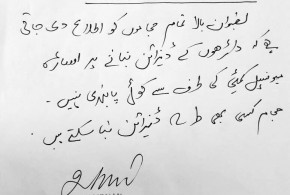 بعنوان بالا تمام حجاموں کو اطلاع دی جاتی
ہے کہ داڑھوں کے ڈیزائن بنانے پر
میونسپل کمیٹی کی طرف سے کوئی پابندی نہیں -
حجام کسی بھی طرح کے ڈیزائن بنا سکتے ہیں -